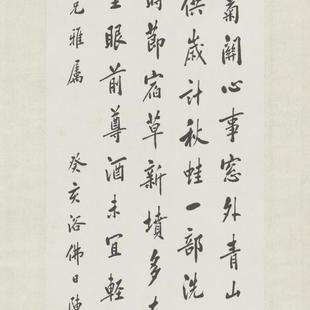 菊關心事窗外青山
供歲計秋蛙一部洗
時節宿草新墳多
眼前尊酒未宜輕
兄雅屬 癸亥浴佛日陳